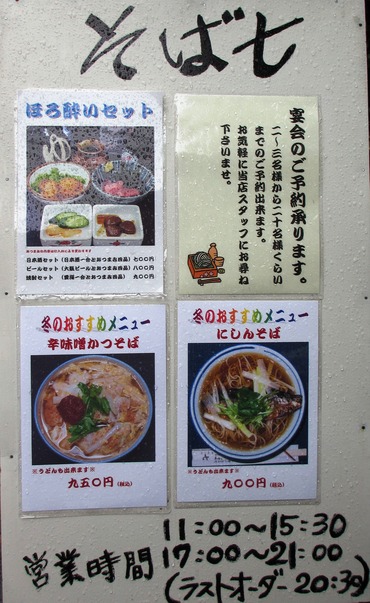 そば七
ほろ酔いセット
日本酒セット（日本酒一合とおつまみ四品）七〇〇円
ビールセット（大瓶ビールとおつまみ四品）八〇〇円
焼酎セット（焼酎一合とおつまみ四品）九〇〇円
宴会のご予約承ります。
二～三名様から二十名様くらい
までのご予約出来ます。
お気軽に当店スタッフにお尋ね
下さいませ。
冬のおすすめメニュー
辛味噌かつそば
※うどんも出来ます※
九五〇円（税込）
冬のおすすめメニュー
にしんそば
※うどんも出来ます※
九〇〇円（税込）
営業時間
11:00～15:30
17:00～21:00
（ラストオーダー20:30）